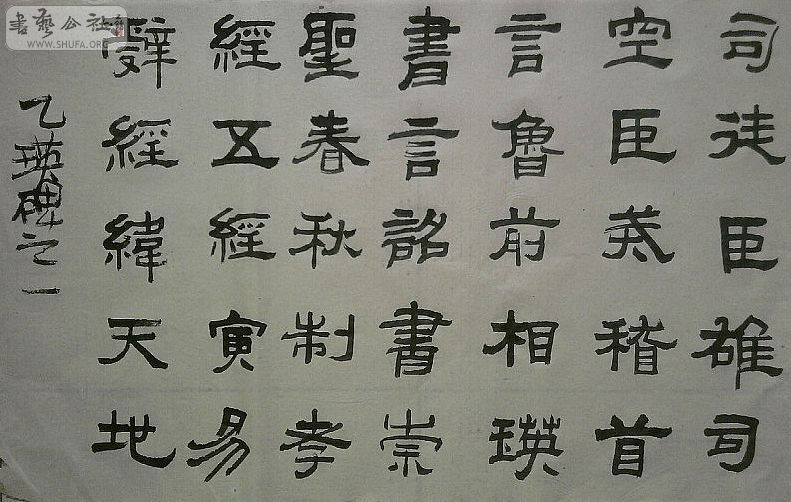 司徒臣雄司
空臣戒稽首
言魯前相瑛
書言詔書崇
聖春秋制孝
經五經演易
辭經緯天地
乙瑛碑之一
書藝公社
WWW.SHUFA.ORG